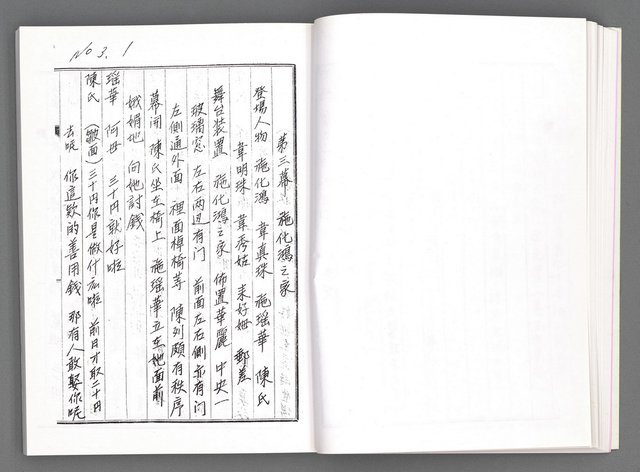 No 3. 1
第三幕 施化鴻之家
登場人物 施化鴻 韋真珠 施瑶華 陳氏
韋明珠 韋秀姑 来好姆 郵差
舞台装置 施化鴻之家 佈置華麗 中央一
玻璃窓 左右两边有门 前面左右側亦有门
左側通外面 裡面棹椅等 陳列頗有秩序
幕開 陳氏坐在椅上 施瑶華立在她面前
娥媚地 向她討錢
瑶華 阿母 三十円就好啦
陳氏 （皺面）三十円你是做什么啦 前日才取二十円
去呢 你這款的善用錢 那有人敢娶你呢